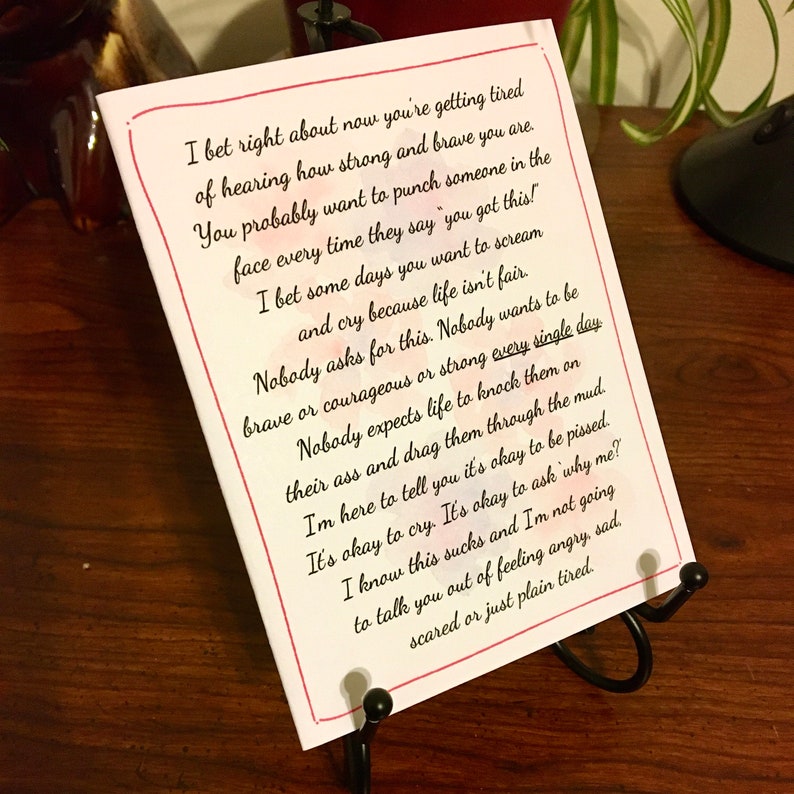 I bet right about now you're getting tired
of hearing how strong and brave you are.
You probably want to punch someone in the
face every time they say "you got this!"
I bet some days you want to scream
and cry because life isn't fair.
Nobody asks for this. Nobody wants to be
brave or courageous or strong every single day.
Nobody expects life to knock them on
their ass and drag them through the mud.
I'm here to tell you it's okay to be pissed.
It's okay to cry. It's okay to ask 'why me?'
I know this sucks and I'm not going
to talk you out of feeling angry, sad,
scared or just plain tired.